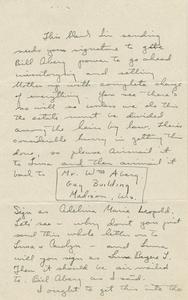 This blank I'm sending
needs your signature to give
Bill Abery power to go ahead
inventorying and settling
Mother up with complete charge
of everything. You see there's
no will so unless we do this
the estate must be divided
among the heirs by law. There's
considerable hurry in getting this
done - please airmail it
to Luna and then airmail it
back to
Mr. Wm Abery
Gay Building
Madison, Wis.
Sign as Adelina Maria Leopold.
Let's see - why don't you just
send this whole letter on to
Luna & Carolyn - and Luna
will you sign as Luna
Then it should be air mailed
to Bill Abery as I said.
I ought to get this into the